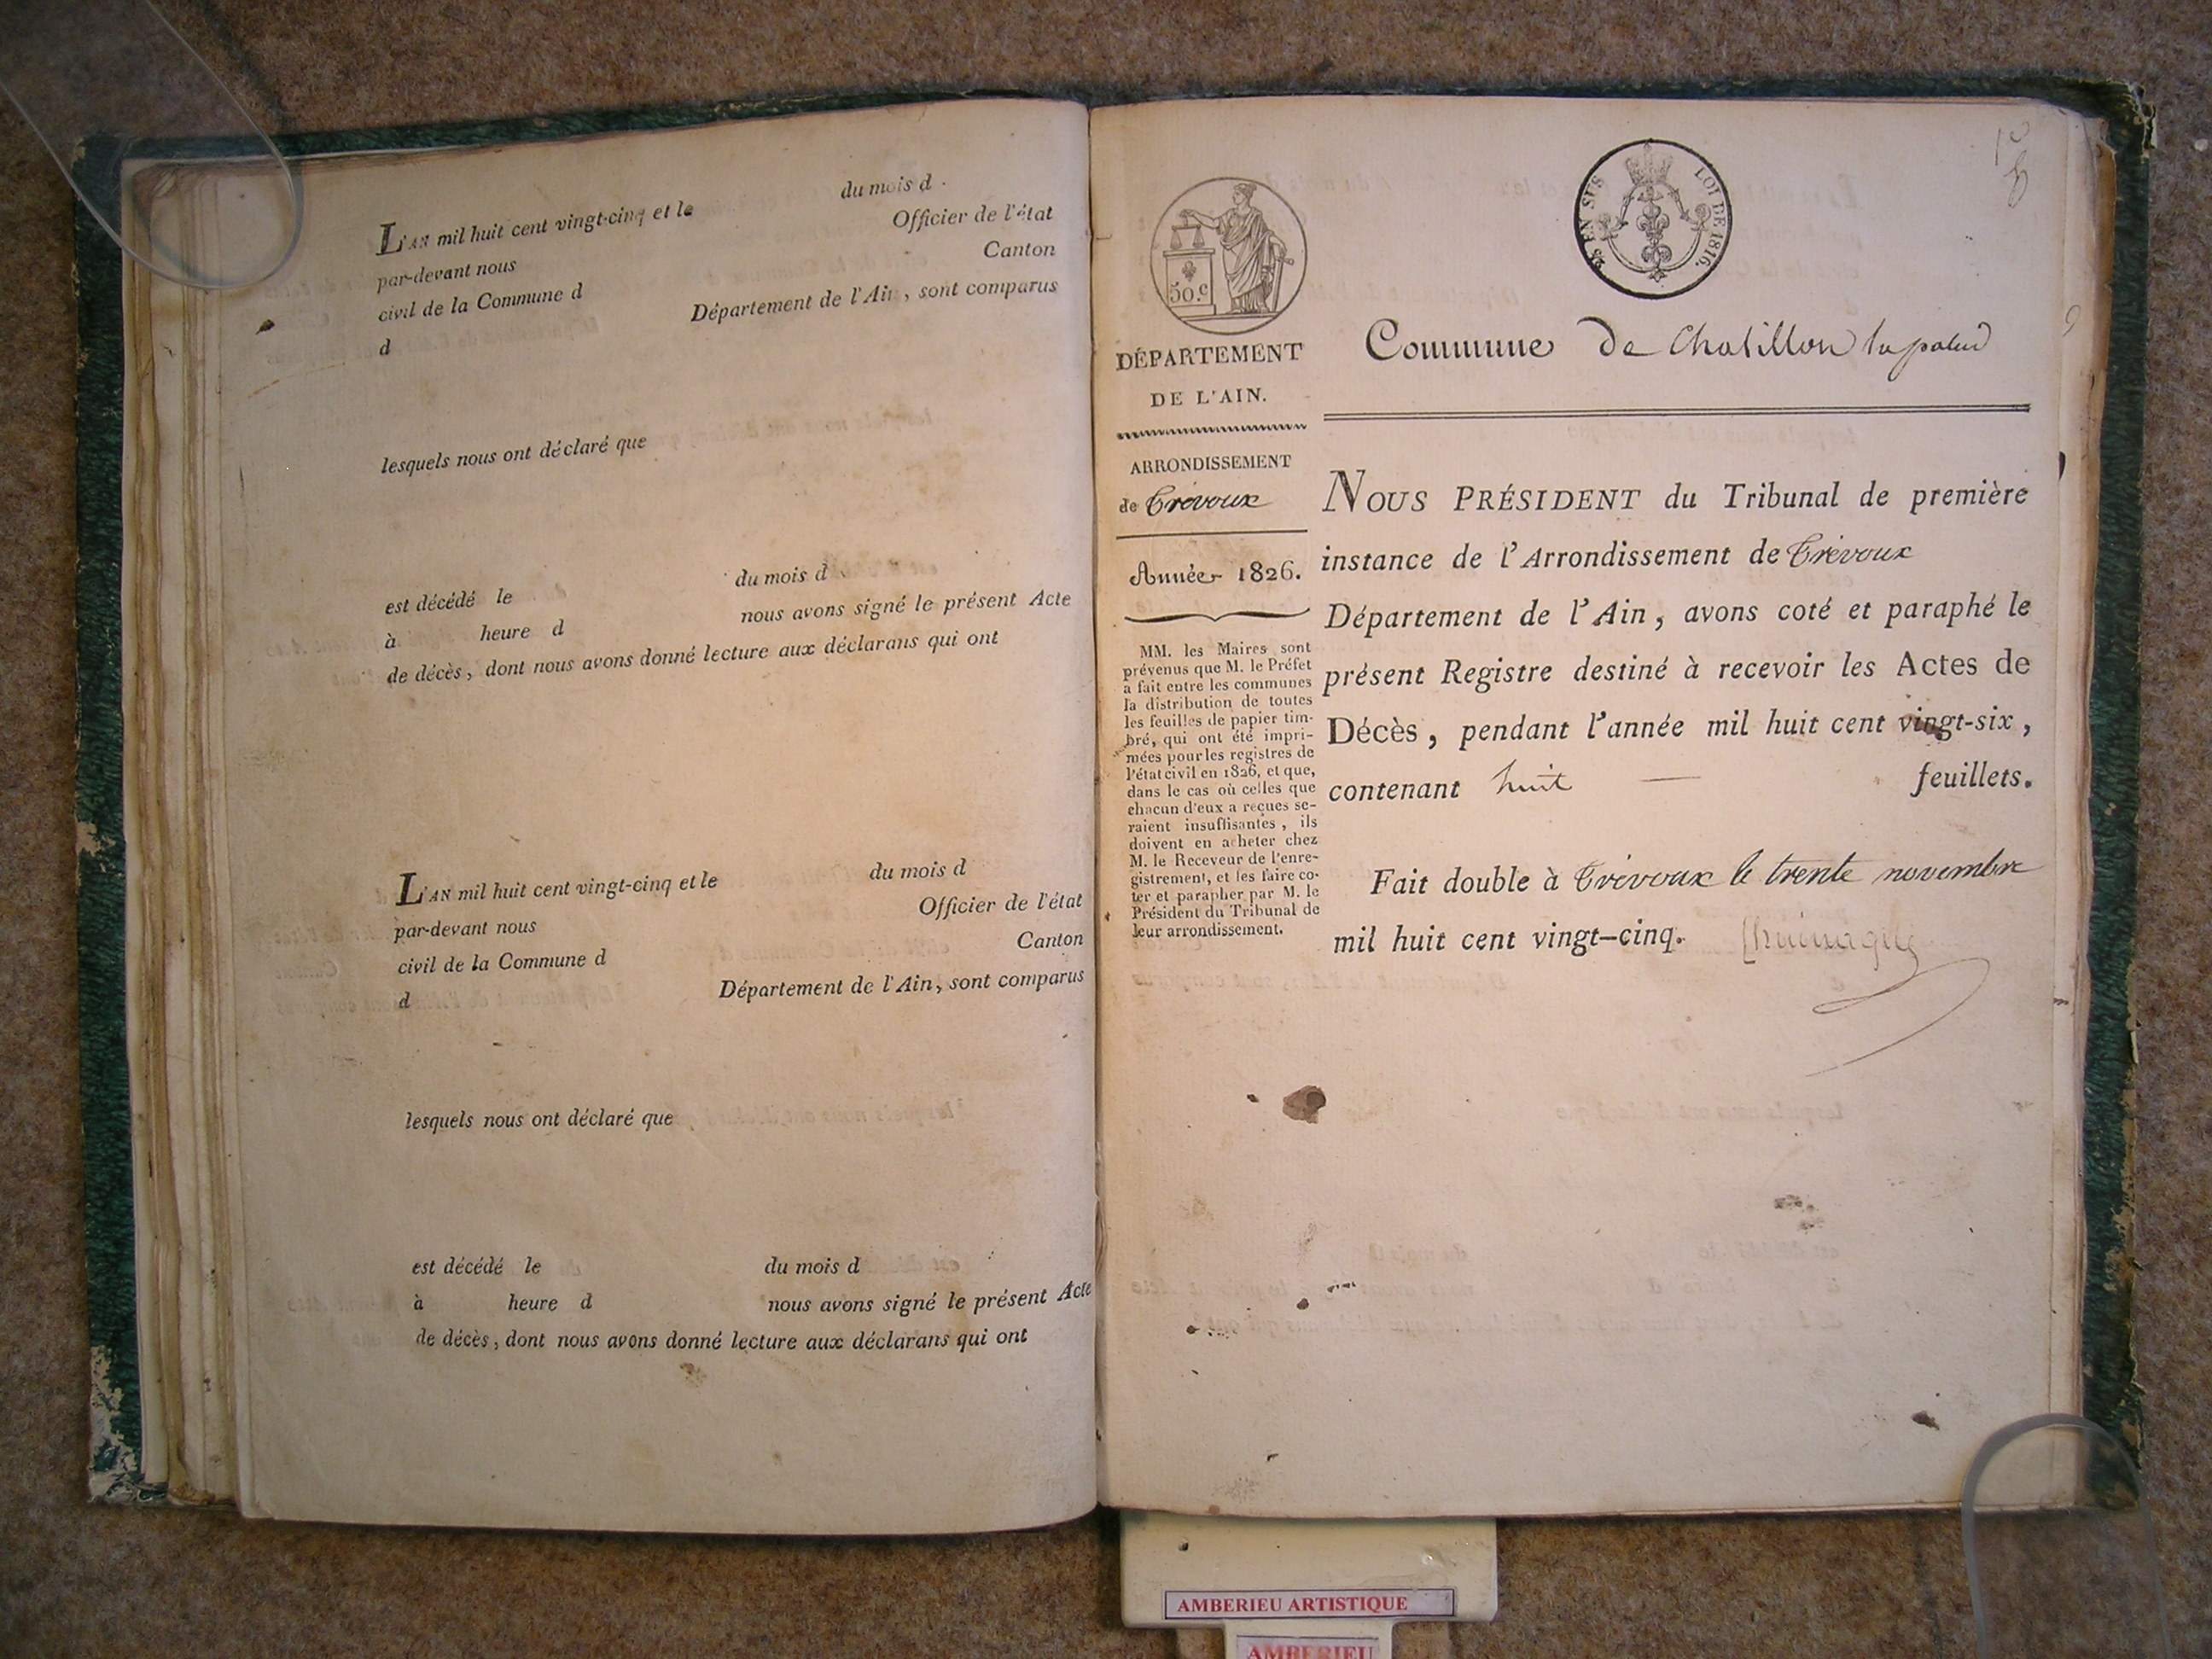 L'AN mil huit cent vingt-cinq et le du mois d
par-devant nous Officier de l'état
civil de la Commune d Canton
d Département de l'Ain, sont comparus
lesquels nous ont déclaré que
est décédé le du mois d
à heure d nous avons signé le présent Acte
de décès, dont nous avons donné lecture aux déclarans qui ont
L'AN mil huit cent vingt-cinq et le du mois d
par-devant nous Officier de l'état
civil de la Commune d Canton
d Département de l'Ain, sont comparus
lesquels nous ont déclaré que
est décédé le du mois d
à heure d nous avons signé le présent Acte
de décès, dont nous avons donné lecture aux déclarans qui ont
50.c
EN SUS
LOI DE 1816.
DÉPARTEMENT
DE L'AIN.
ARRONDISSEMENT
de Trévoux
Année 1826.
MM. les Maires sont
prévenus que M. le Préfet
a fait entre les communes
la distribution de toutes
les feuilles de papier tim-
bré, qui ont été impri-
mées pour les registres de
l'état civil en 1826, et que,
dans le cas où celles que
chacun d'eux a reçues se-
raient insuffisantes, ils
doivent en acheter chez
M. le Receveur de l'enre-
gistrement, et les faire co-
ter et parapher par M. le
Président du Tribunal de
leur arrondissement.
Commune de Chatillon la palud
NOUS PRÉSIDENT du Tribunal de première
instance de l'Arrondissement de Trévoux
Département de l'Ain, avons coté et paraphé le
présent Registre destiné à recevoir les Actes de
Décès, pendant l'année mil huit cent vingt-six,
contenant huit — feuillets.
Fait double à Trévoux le trente novembre
mil huit cent vingt-cinq.
AMBERIEU ARTISTIQUE
AMBERIEU